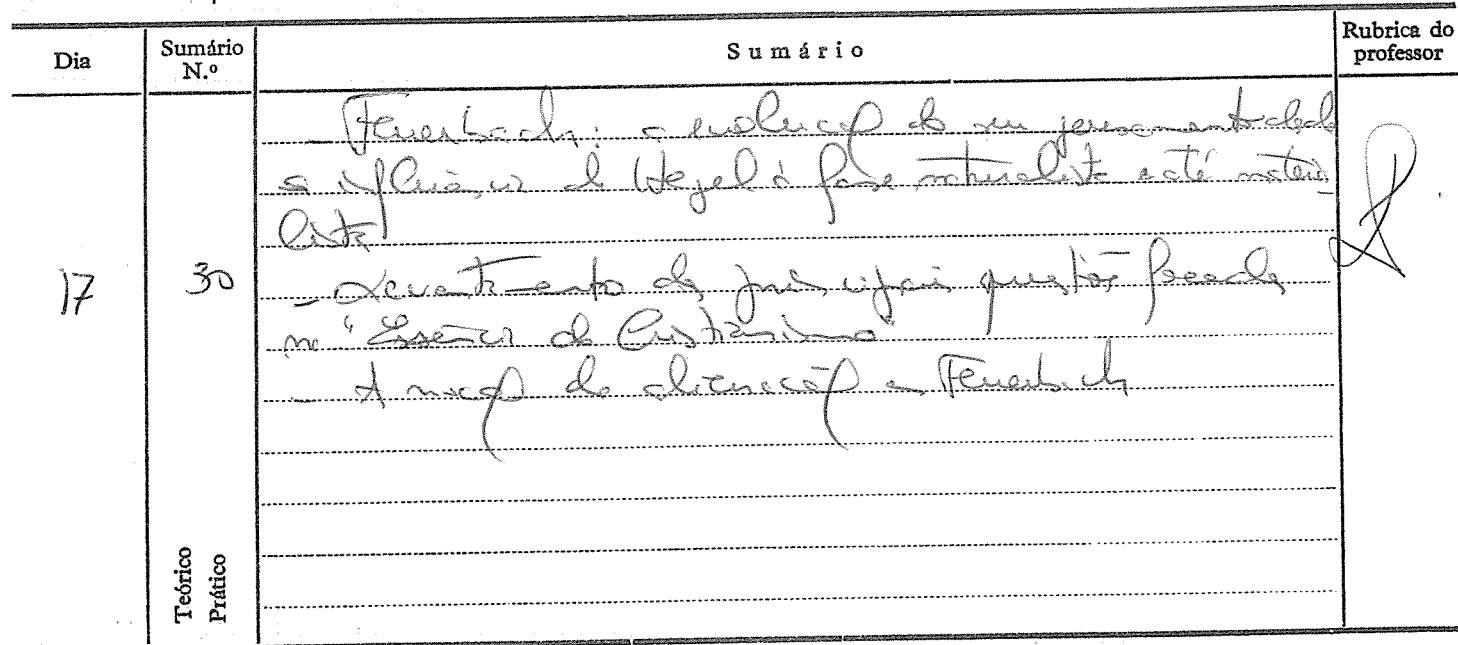 Dia
Sumário N.º
Sumário
Rubrica do professor
17
30
- Feuerbach: a evolução do seu pensamento desde
a influência de Hegel à fase naturalista e até materia-
lista
- Levantamento das principais questões focadas
na "Essência do Cristianismo"
- A noção de alienação em Feuerbach
Teórico
Prático